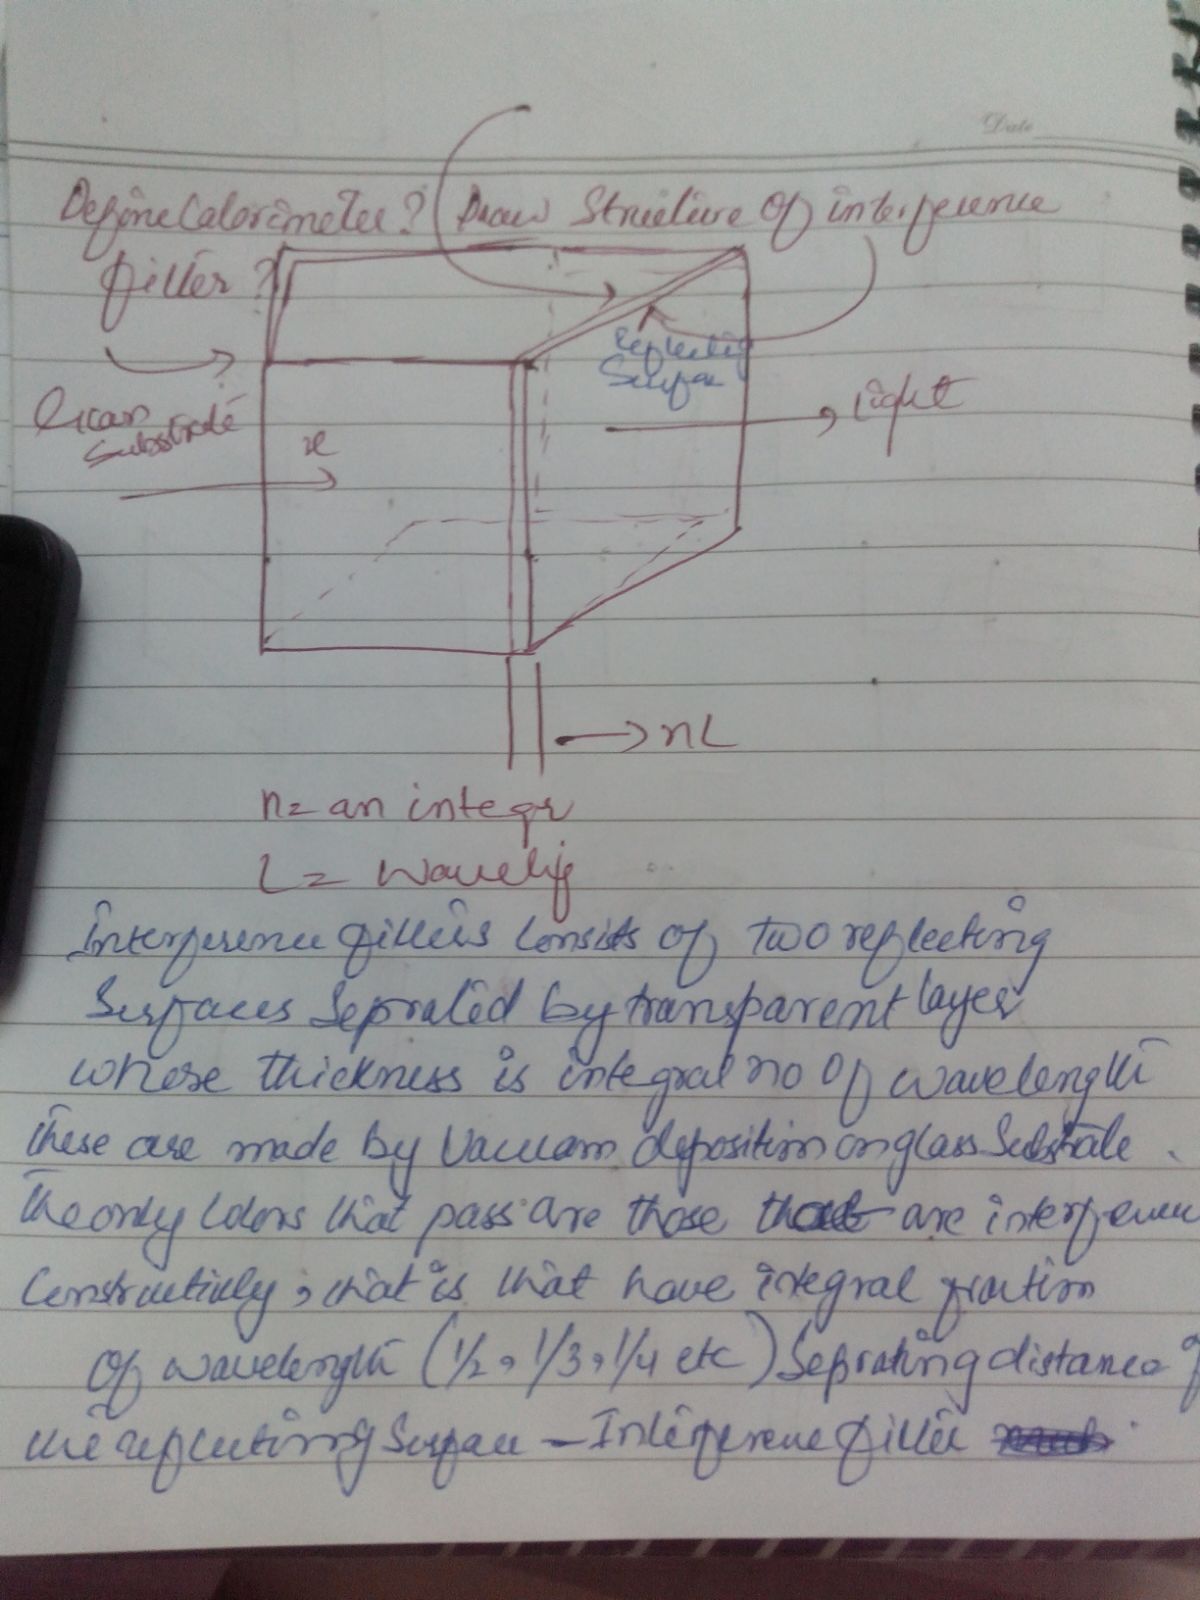 Date
Define Calorimeter? Draw Structure Of interference
filter?
Reflecting
Surface
Light
Substrate
x
nL
n = an integr
L =
Interference filters consists of two reflecting
Surfaces Seprated by transparent layer
whose thickness is integral no Of wavelength
These are made by Vacuam deposition on glass Substrate.
The only Colors that pass are those that are interference
Constructively, that is that have integral fraction
Of wavelength (1/2, 1/3, 1/4 etc) Seprating distance of
the reflecting Surface - Interference filter